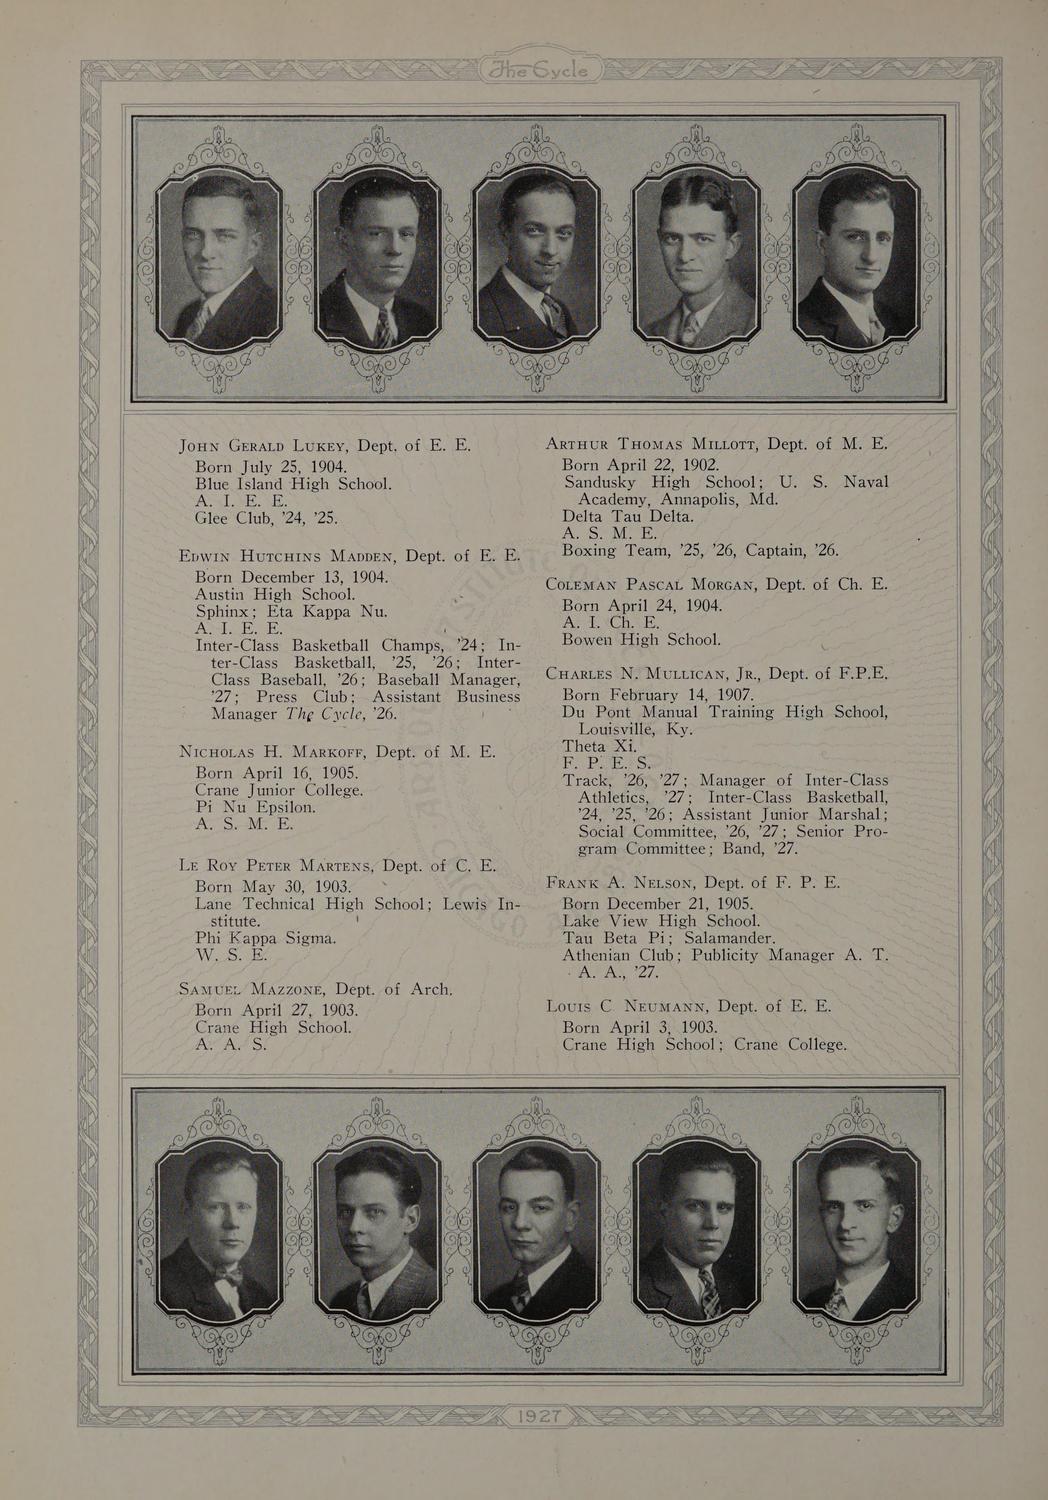 The Cycle
John Gerald Lukey, Dept. of E. E.
Born July 25, 1904.
Blue Island High School.
A. I. E. E.
Glee Club, ’24, ’25.
Edwin Hutchins Madden, Dept. of E. E.
Born December 13, 1904.
Austin High School.
Sphinx; Eta Kappa Nu.
A. I. E. E.
Inter-Class Basketball Champs, ’24; In-
ter-Class Basketball, ’25, ’26; Inter-
Class Baseball, ’26; Baseball Manager,
’27; Press Club; Assistant Business
Manager The Cycle, ’26.
Nicholas H. Markoff, Dept. of M. E.
Born April 16, 1905.
Crane Junior College.
Pi Nu Epsilon.
A. S. M. E.
Le Roy Peter Martens, Dept. of C. E.
Born May 30, 1903.
Lane Technical High School; Lewis In-
stitute.
Phi Kappa Sigma.
W. S. E.
Samuel Mazzone, Dept. of Arch.
Born April 27, 1903.
Crane High School.
A. A. S.
Arthur Thomas Millott, Dept. of M. E.
Born April 22, 1902.
Sandusky High School; U. S. Naval
Academy, Annapolis, Md.
Delta Tau Delta.
A. S. M. E.
Boxing Team, ’25, ’26, Captain, ’26.
Coleman Pascal Morgan, Dept. of Ch. E.
Born April 24, 1904.
A. I. Ch. E.
Bowen High School.
Charles N. Mullican, Jr., Dept. of F.P.E.
Born February 14, 1907.
Du Pont Manual Training High School,
Louisville, Ky.
Theta Xi.
F. P. E. S.
Track, ’26, ’27; Manager of Inter-Class
Athletics, ’27; Inter-Class Basketball,
’24, ’25, ’26; Assistant Junior Marshal;
Social Committee, ’26, ’27; Senior Pro-
gram Committee; Band, ’27.
Frank A. Nelson, Dept. of F. P. E.
Born December 21, 1905.
Lake View High School.
Tau Beta Pi; Salamander.
Athenian Club; Publicity Manager A. T.
A. A., ’27.
Louis C. Neumann, Dept. of E. E.
Born April 3, 1903.
Crane High School; Crane College.
1927